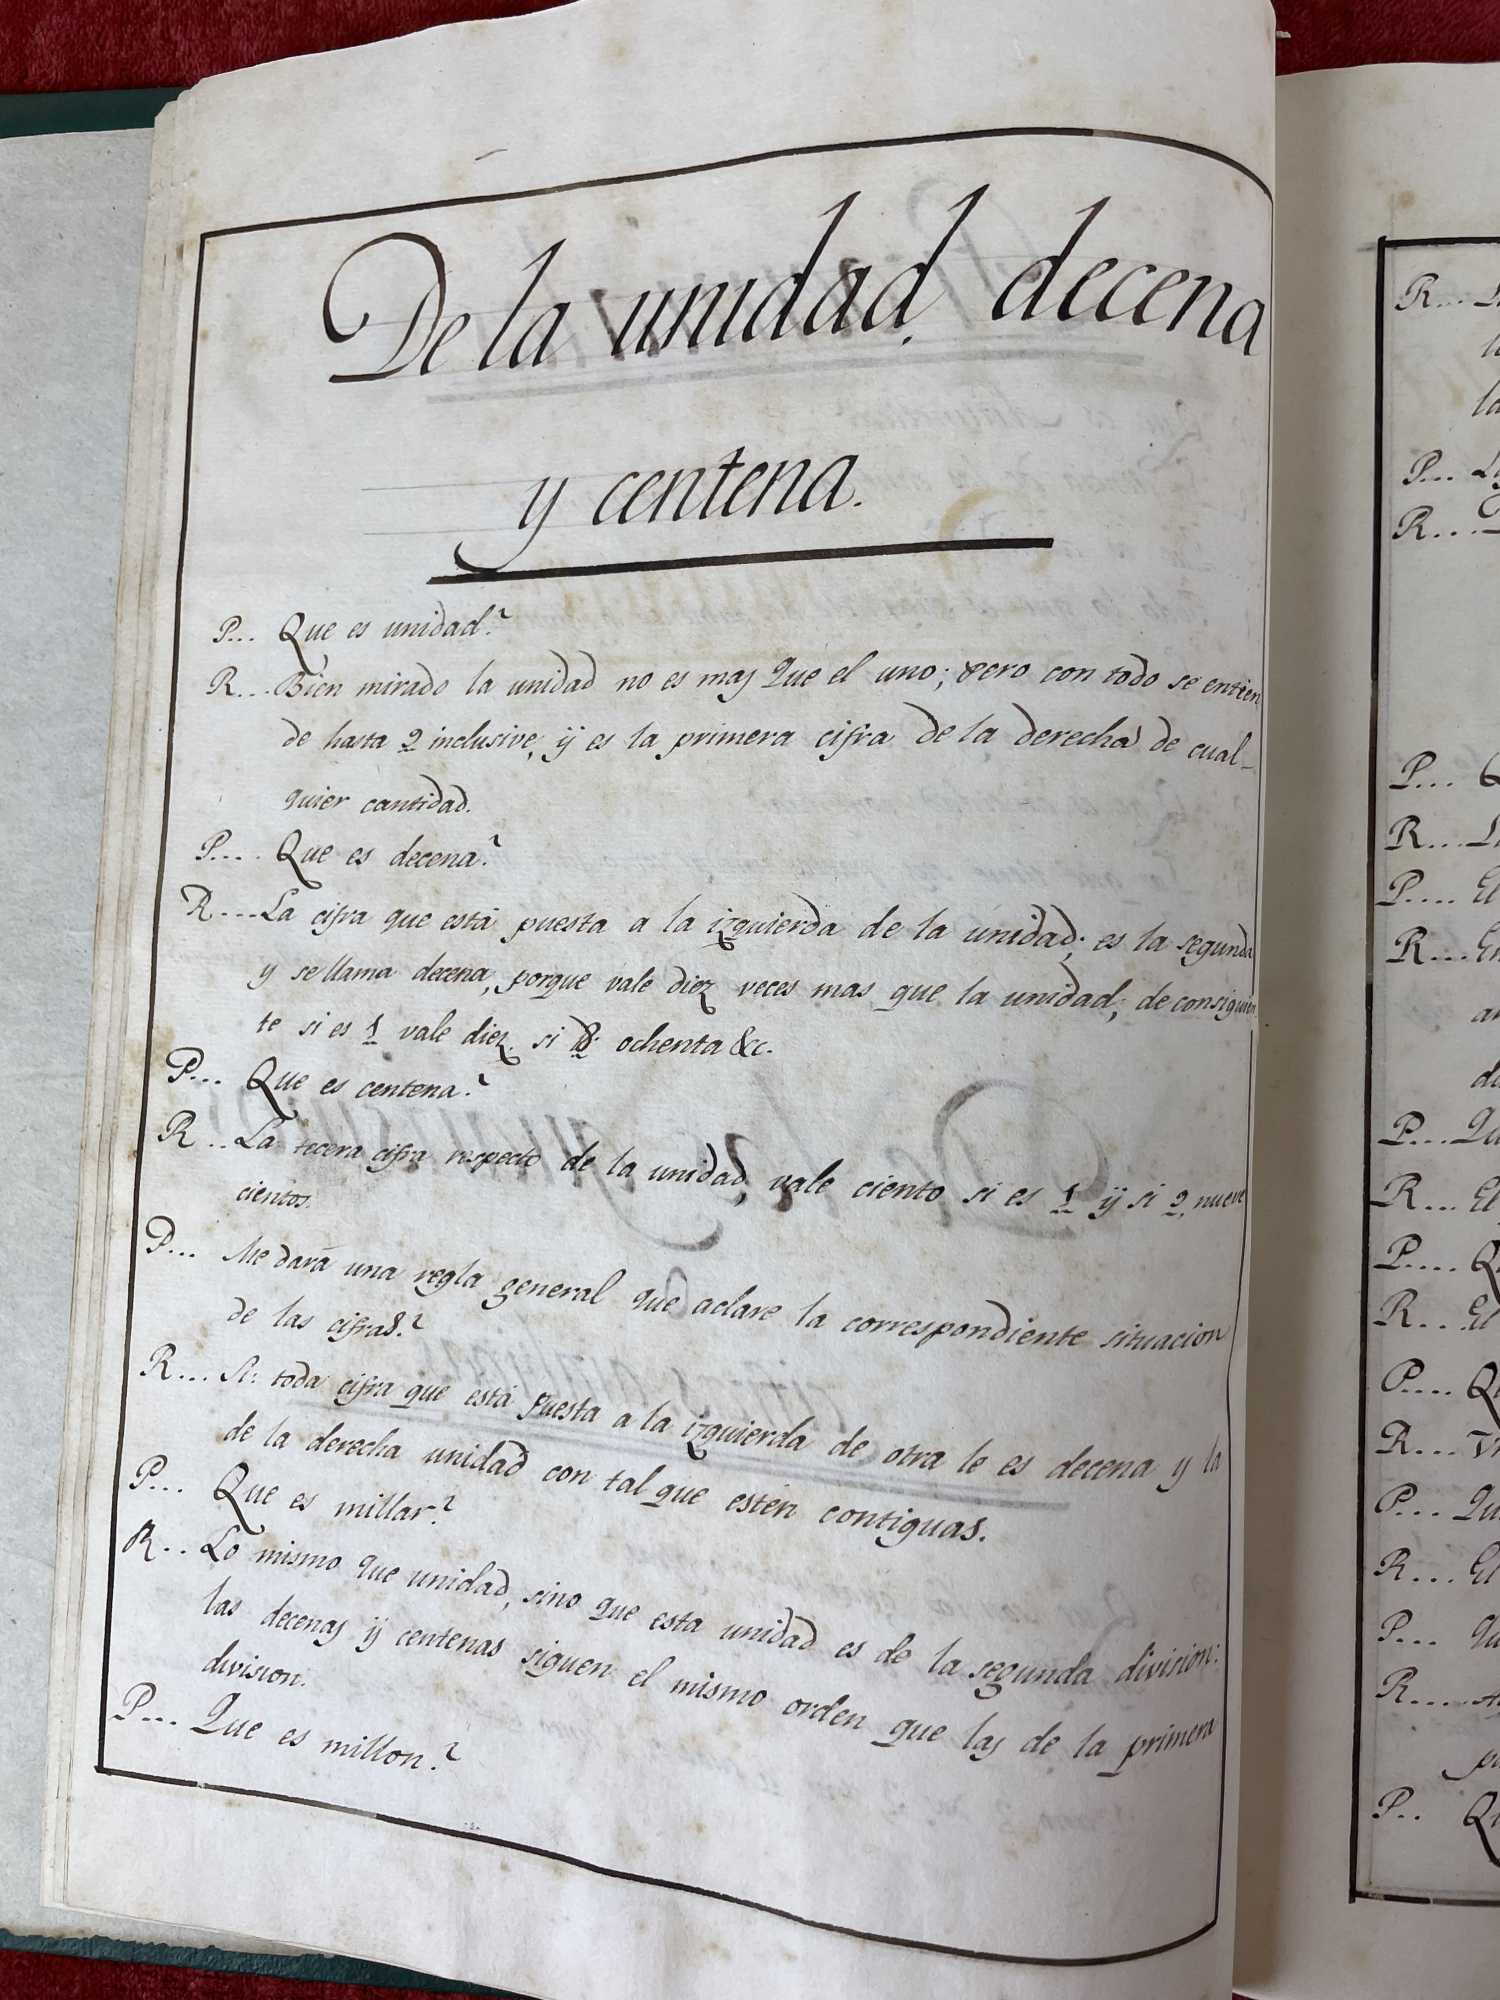 De la unidad, decena
y centena.
P... Que es unidad?
R... Bien mirado la unidad no es mas que el uno; pero con todo se entien
de hasta 9 inclusive, ÿ es la primera cifra de la derecha de cual-
quier cantidad.
P.... Que es decena?
R... La cifra que está puesta a la izquierda de la unidad; es la segunda
y se llama decena, porque vale diez veces mas que la unidad; de consiguien
te si es 1 vale diez. si 8. ochenta &c.
P... Que es centena?
R... La tecera cifra respecto de la unidad, vale ciento si es 1 ÿ si 9, nueve
cientos.
P... Me dará una regla general que aclare la correspondiente situacion
de las cifras?
R... Si: toda cifra que está puesta a la izquierda de otra le es decena y la
de la derecha unidad con tal que estén contiguas.
P... Que es millar?
R... Lo mismo que unidad, sino que esta unidad es de la segunda division:
las decenas ÿ centenas siguen el mismo orden que las de la primera
division.
P... Que es millon?
R...
la
P...
R...
P...
R...
P.... El
R...
P... Qu
R... El
P....
R... El
P....
R...
P... Qu
R... El
P...
R...
P..